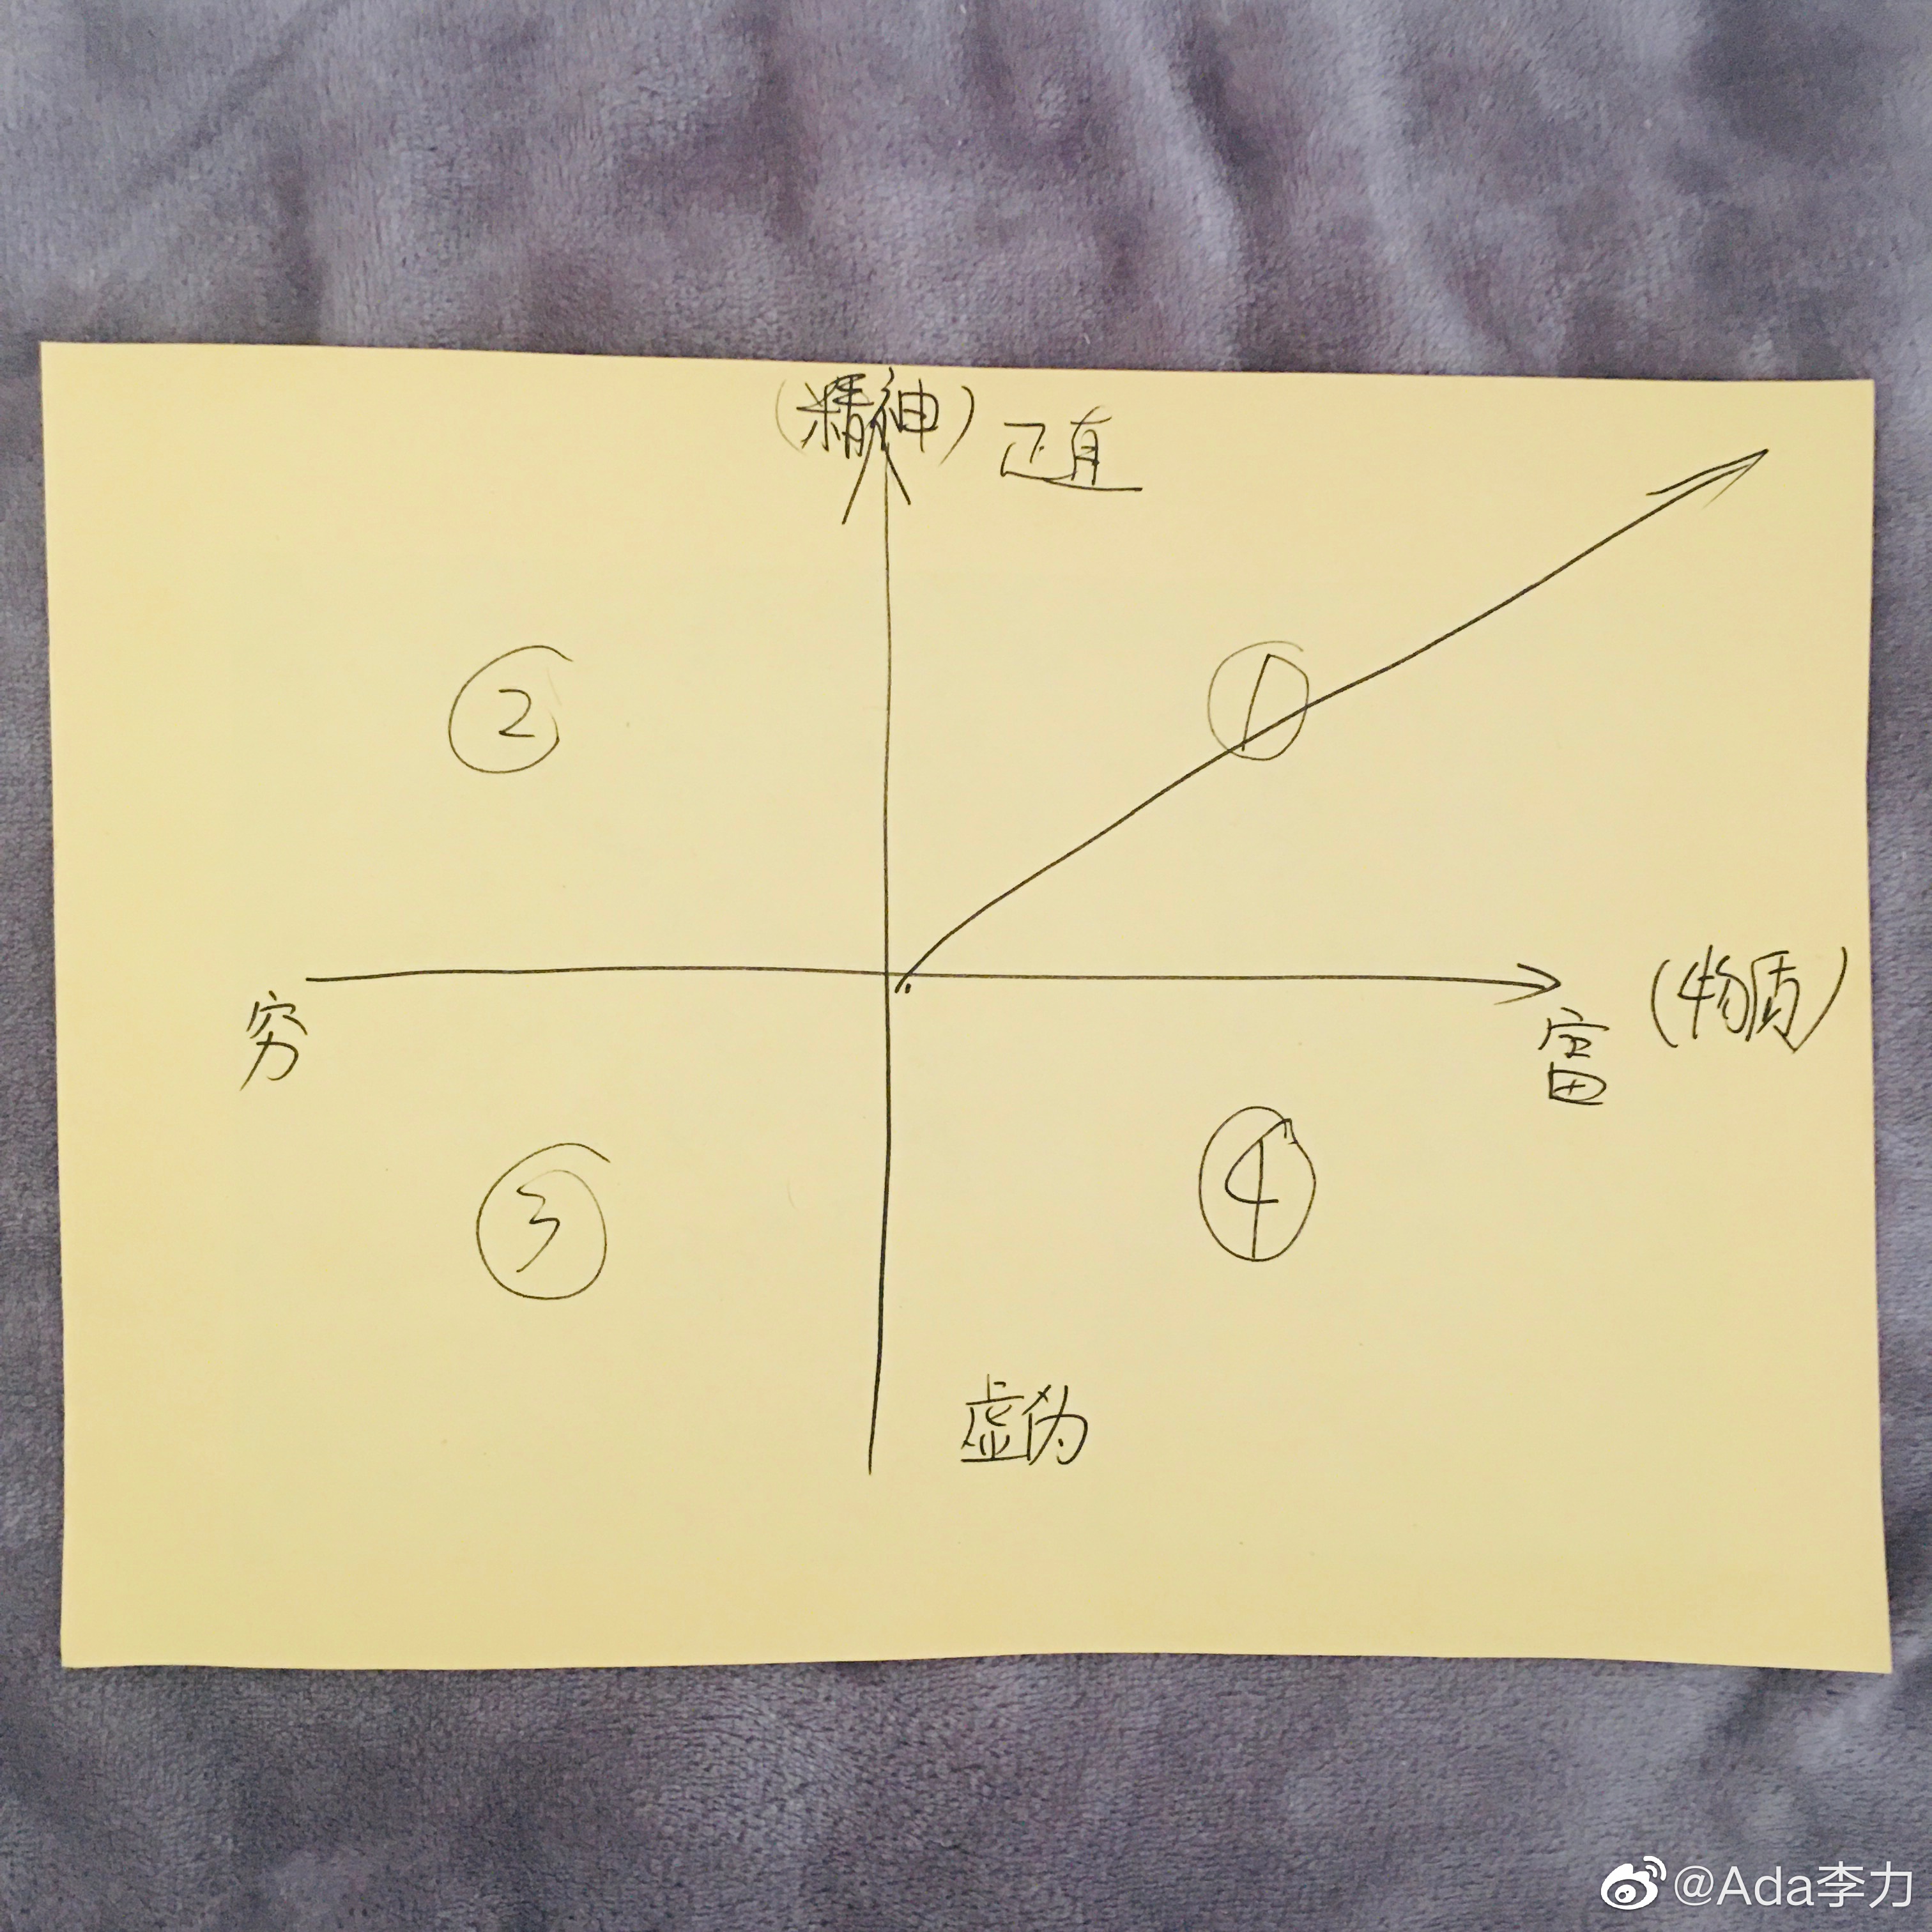 (精神) 正直
② ①
穷 富 (物质)
③ ④
虚伪
@Ada李力